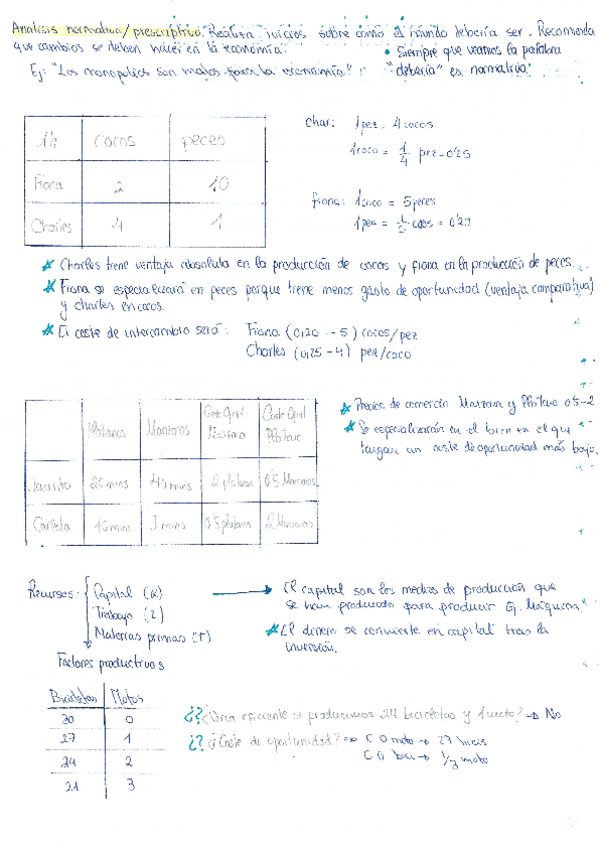 Analisis normativo/prescriptivo: Realiza juicios sobre como el mundo debería ser. Recomienda
que cambios se deben hacer en la economía.
• Siempre que veamos la palabra
"debería" es normativo.
Ej: "Los monopolios son malos para la economía"
1h cocos peces
Fiona 2 10
Charles 4 1
char: 1pez - 4 cocos
1coco = 1/4 pez - 0'25
fiona: 1coco = 5 peces
1pez = cocos = 0'20
* Charles tiene ventaja absoluta en la producción de cocos y fiona en la producción de peces.
* Fiona se especializará en peces porque tiene menos gasto de oportunidad (ventaja comparativa)
y charles en cocos.
* El coste de intercambio será: Fiona (0,20 - 5) cocos/pez
Charles (0,25 - 4) pez/coco
Platanos Manzanas Coste Oprt Coste Oprt Platano
20 mins 40 mins 2 platanos 0'5 Manzanas
10 mins 5 mins 0'5 platanos 2 Manzanas
* Precios de comercio Manzana y Platano 0'5-2
* Se especializarán en el bien en el que
tengan un coste de oportunidad más bajo.
Recursos: Capital (K)
Trabajo (L)
Materias primas (T)
Factores productivos
→ El capital son los medios de producción que
se han producido para producir Ej. Máquina.
* El dinero se convierte en capital tras la
inversión.
Bicicletas Motos
30 0
27 1
24 2
21 3
¿? ¿Sería eficiente si producimos 24 bicicletas y 1 moto? → No
¿? ¿Coste de oportunidad? → C O moto → 27 bicis
C O bici → 1/3 moto